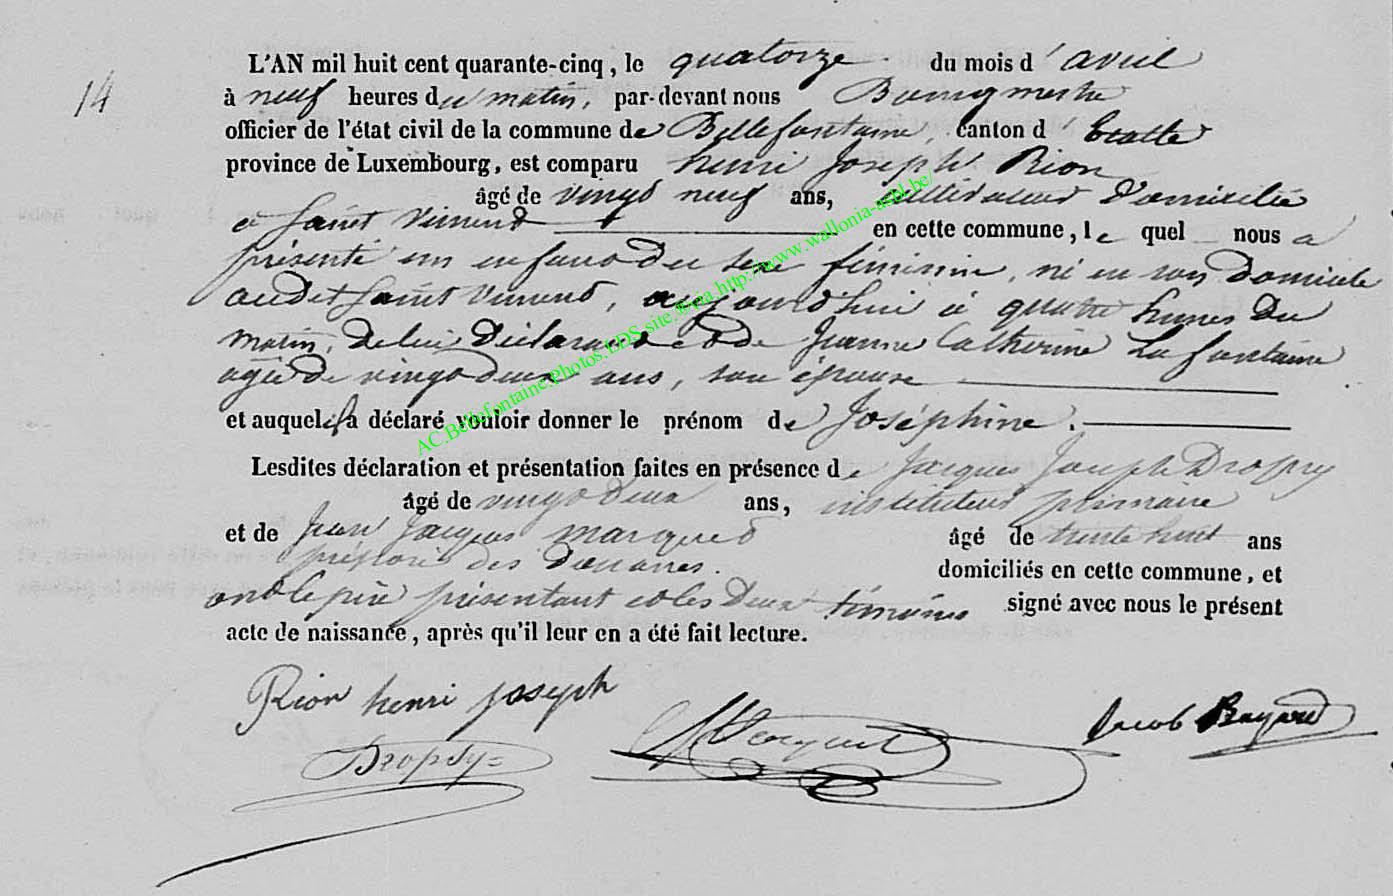 14
L'AN mil huit cent quarante-cinq, le quatorze du mois d'avril
à neuf heures du matin, par-devant nous Bourgmestre
officier de l'état civil de la commune de Bellefontaine, canton d'Etalle
province de Luxembourg, est comparu henri Joseph Rion
âgé de vingt neuf ans, cultivateur Domicilié
à Saint Vincent en cette commune, le quel nous a
présenté un enfant du sexe féminin, né en son Domicile
audit Saint Vincent, aujourd'hui à quatre heures Du
matin, De lui Déclarant et de Jeanne Catherine Lafontaine
agée De vingt deux ans, son épouse
et auquel il a déclaré vouloir donner le prénom de Joséphine.
Lesdites déclaration et présentation faites en présence de Jacques Joseph Dropsy
âgé de vingt Deux ans, instituteur primaire
et de Jean Jacques marquet âgé de trente huit ans
préposé des Douanes. domiciliés en cette commune, et
ont le père présentant et les Deux témoins signé avec nous le présent
acte de naissance, après qu'il leur en a été fait lecture.
Rion henri joseph
Dropsy
Jacob Bayard
AC.Bellefontaine.Photos.LDS.site.®via.http://www.wallonia-asbl.be/